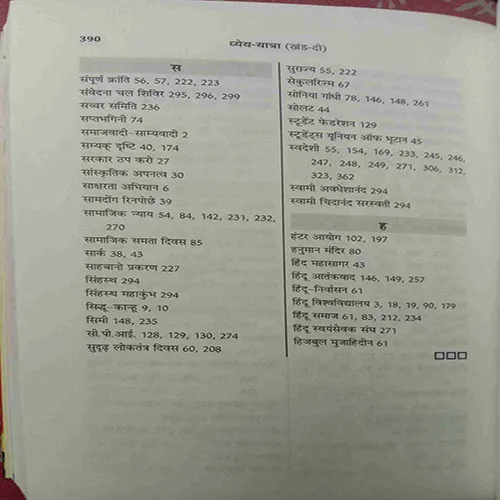 390
ध्येय-यात्रा (खंड-दो)
स
संपूर्ण क्रांति 56, 57, 222, 223
संवेदना चल शिविर 295, 296, 299
सच्चर समिति 236
सप्तभगिनी 74
समाजवादी-साम्यवादी 2
सम्यक् दृष्टि 40, 174
सरकार ठप करो 27
सांस्कृतिक अपनत्व 30
साक्षरता अभियान 6
सामदोंग रिनपोछे 39
सामाजिक न्याय 54, 84, 142, 231, 232,
270
सामाजिक समता दिवस 85
सार्क 38, 43
साहबानो प्रकरण 227
सिंहस्थ 294
सिंहस्थ महाकुंभ 294
सिद्धू-कान्हू 9, 10
सिमी 148, 235
सी.पी.आई. 128, 129, 130, 274
सुदृढ़ लोकतंत्र दिवस 60, 208
सुराज्य 55, 222
सेकुलरिज्म 67
सोनिया गांधी 78, 146, 148, 261
सोलट 44
स्टूडेंट फेडरेशन 129
स्टूडेंट्स यूनियन ऑफ भूटान 45
स्वदेशी 55, 154, 169, 233, 245, 246,
247, 248, 249, 271, 306, 312,
323, 362
स्वामी अवधेशानंद 294
स्वामी चिदानंद सरस्वती 294
ह
हंटर आयोग 102, 197
हनुमान मंदिर 80
हिंद महासागर 43
हिंदू आतंकवाद 146, 149, 257
हिंदू-निर्वासन 61
हिंदू विश्वविद्यालय 3, 18, 19, 90, 179
हिंदू समाज 61, 83, 212, 234
हिंदू स्वयंसेवक संघ 271
हिजबुल मुजाहिदीन 61